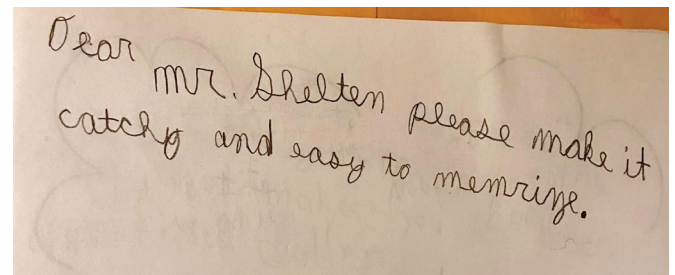 Dear
mr. Shelten please make it
catchy and easy to memrize.